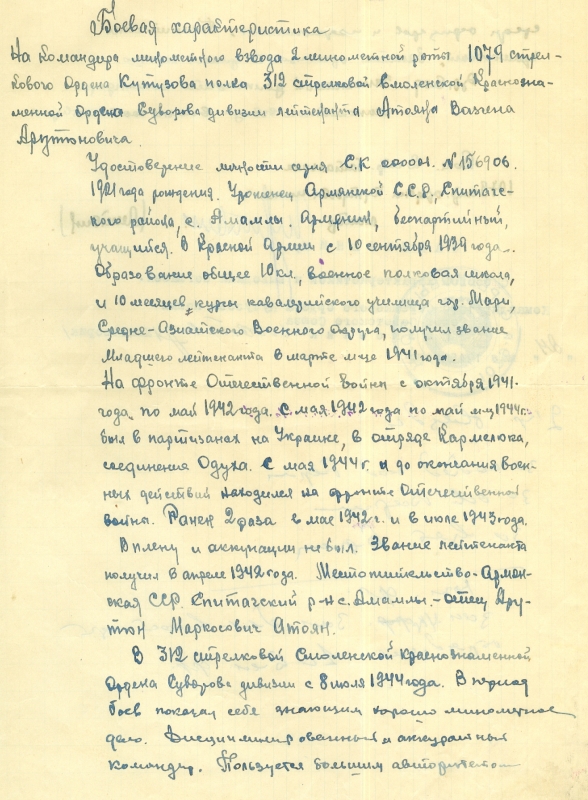 Боевая характеристика
На командира минометного взвода 2 минометной роты 1079 стрел-
кового Ордена Кутузова полка 312 стрелковой Смоленской Краснозна-
менной Ордена Суворова дивизии лейтенанта Атояна
Арутюновича.
Удостоверение личности серия С.К 00001. № 156906.
1921 года рождения. Уроженец Армянской С.С.Р, Спитаг-
кого района, с. Амамлы. Армянин, беспартийный,
учащийся. В Красной Армии с 10 сентября 1939 года.
Образование общее 10 кл., военное полковая школа,
и 10 месяцев курсы кавалерийского училища гор. Мары,
Средне-Азиатского Военного Округа, получил звание
Младшего лейтенанта в марте м-це 1941 года.
На фронте Отечественной войны с октября 1941-
года по май 1942 года. С мая 1942 года по май м-ц 1944 г.
был в партизанах на Украине, в отряде Кармелюка,
соединение Одуха. С мая 1944 г. и до окончания воен-
ных действий находился на фронте Отечественной
войны. Ранен 2 раза в мае 1942 г. и в июле 1943 года.
В плену и аккупации не был. Звание лейтенанта
получил в апреле 1942 года. Местожительство - Армян-
ская ССР. Спитагский р-н с. Амамлы. - отец Ару-
тюн Маркосович Атоян.
В 312 стрелковой Смоленской Краснознаменной
Ордена Суворова дивизии с 8 июля 1944 года. В период
боев показал себе знающим хорошо минометное
дело. Дисциплинированный и аккуратный
командир. Пользуется большим авторитетом